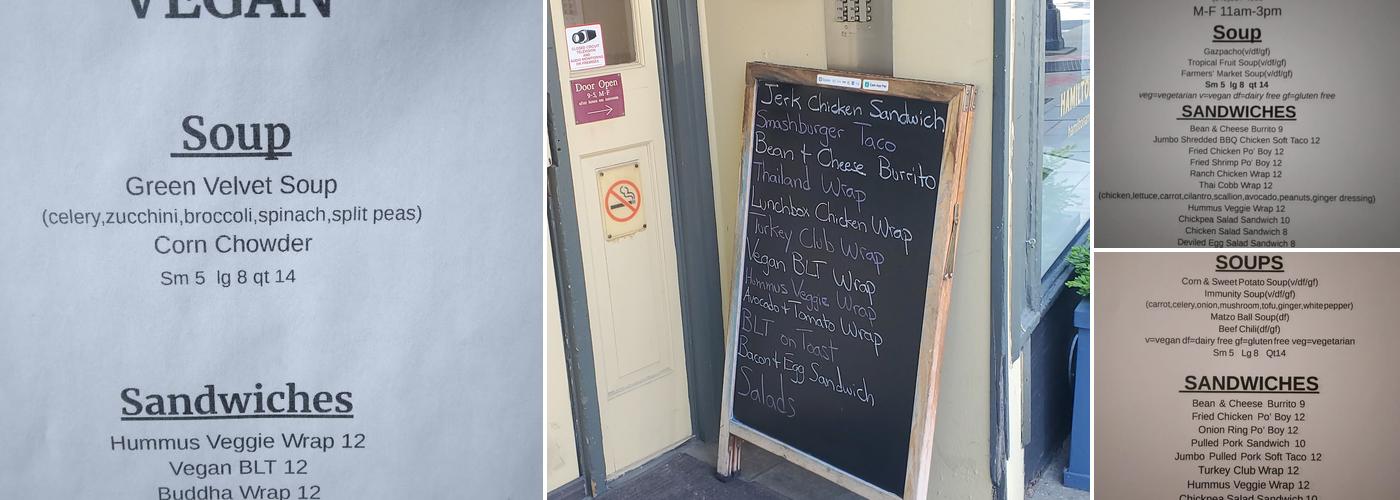 VEGAN
Soup
Green Velvet Soup
(celery,zucchini,broccoli,spinach,split peas)
Corn Chowder
Sm 5 lg 8 qt 14
Sandwiches
Hummus Veggie Wrap 12
Vegan BLT 12
Buddha Wrap 12
CLOSED CIRCUIT
TELEVISION
AND
AUDIO MONITORING
ON PREMISES
Door Open
9-5, M-F
Jerk Chicken Sandwich
Smashburger Taco
Bean + Cheese Burrito
Thailand Wrap
Lunchbox Chicken Wrap
Turkey Club Wrap
Vegan BLT Wrap
Hummus Veggie Wrap
Avocado + Tomato Wrap
BLT on Toast
Bacon + Egg Sandwich
Salads
HAMILTO
M-F 11am-3pm
Soup
Gazpacho(v/df/gf)
Tropical Fruit Soup(v/df/gf)
Farmers' Market Soup(v/df/gf)
Sm 5 lg 8 qt 14
veg=vegetarian v=vegan df=dairy free gf=gluten free
SANDWICHES
Bean & Cheese Burrito 9
Jumbo Shredded BBQ Chicken Soft Taco 12
Fried Chicken Po' Boy 12
Fried Shrimp Po' Boy 12
Ranch Chicken Wrap 12
Thai Cobb Wrap 12
(chicken,lettuce,carrot,cilantro,scallion,avocado,peanuts,ginger dressing)
Hummus Veggie Wrap 12
Chickpea Salad Sandwich 10
Chicken Salad Sandwich 8
Deviled Egg Salad Sandwich 8
SOUPS
Corn & Sweet Potato Soup(v/df/gf)
Immunity Soup(v/df/gf)
(carrot,celery,onion,mushroom,tofu,ginger,whitepepper)
Matzo Ball Soup(df)
Beef Chili(df/gf)
v=vegan df=dairy free gf=gluten free veg=vegetarian
Sm 5 Lg 8 Qt14
SANDWICHES
Bean & Cheese Burrito 9
Fried Chicken Po' Boy 12
Onion Ring Po' Boy 12
Pulled Pork Sandwich 10
Jumbo Pulled Pork Soft Taco 12
Turkey Club Wrap 12
Hummus Veggie Wrap 12
Chickpea Salad Sandwich 10